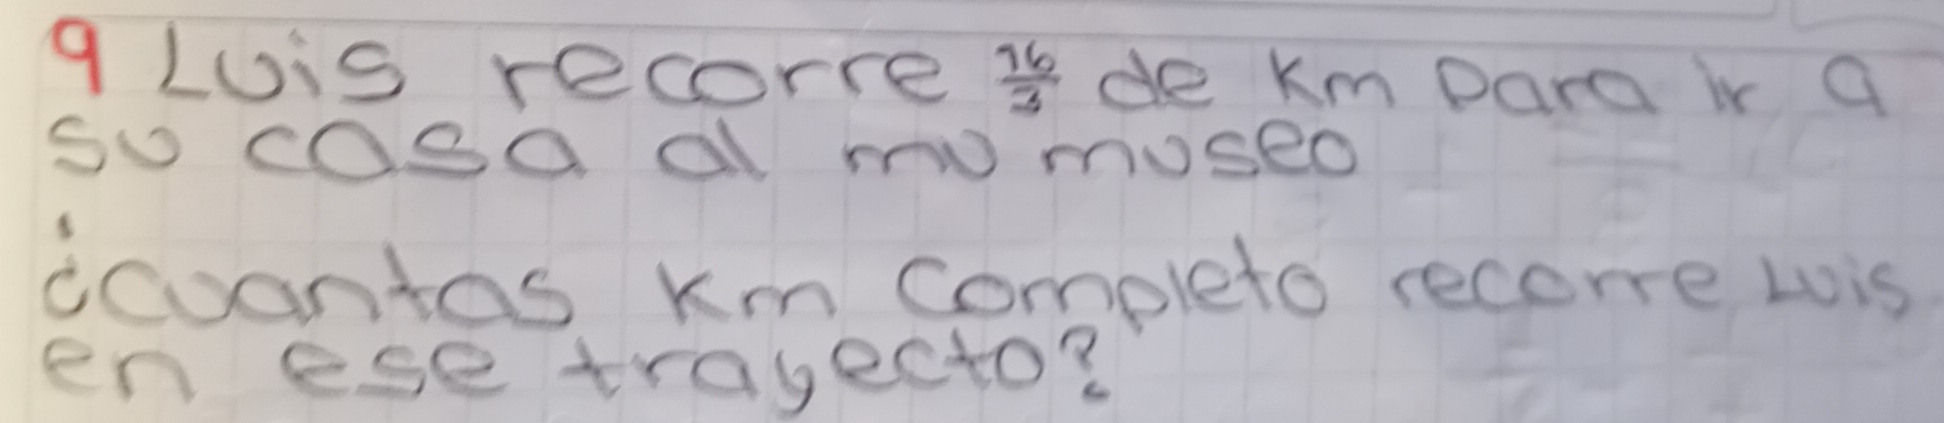 9 Luis recorre 16/3 de Km para ir a
su casa al mu museo
¿cuantas Km completo recorre Luis
en ese trayecto?